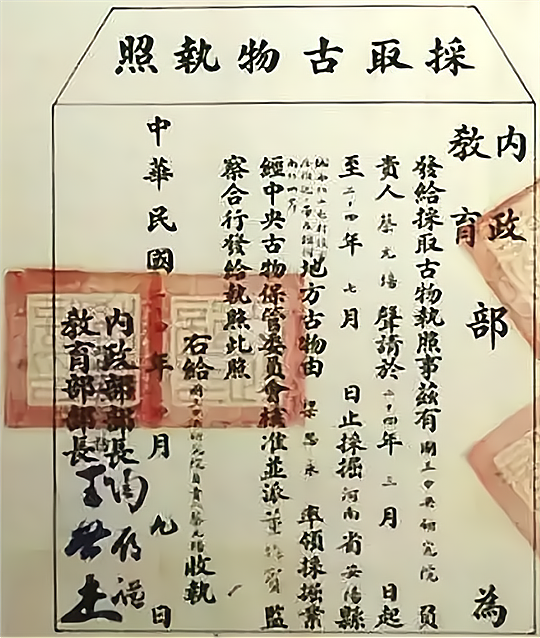 採取古物執照
內政
教育
部為
發給採取古物執照事茲有國立中央研究院負
責人蔡元培聲請於二十四年三月日起
至二十四年七月日止採掘河南省安陽縣
地方古物由梁思永率領採掘業
經中央古物保管委員會核准並派董作賓監
察合行發給執照此照
右給國立中央研究院負責人蔡元培收執
中華民國年月九日
內政部部長
教育部部長王世杰